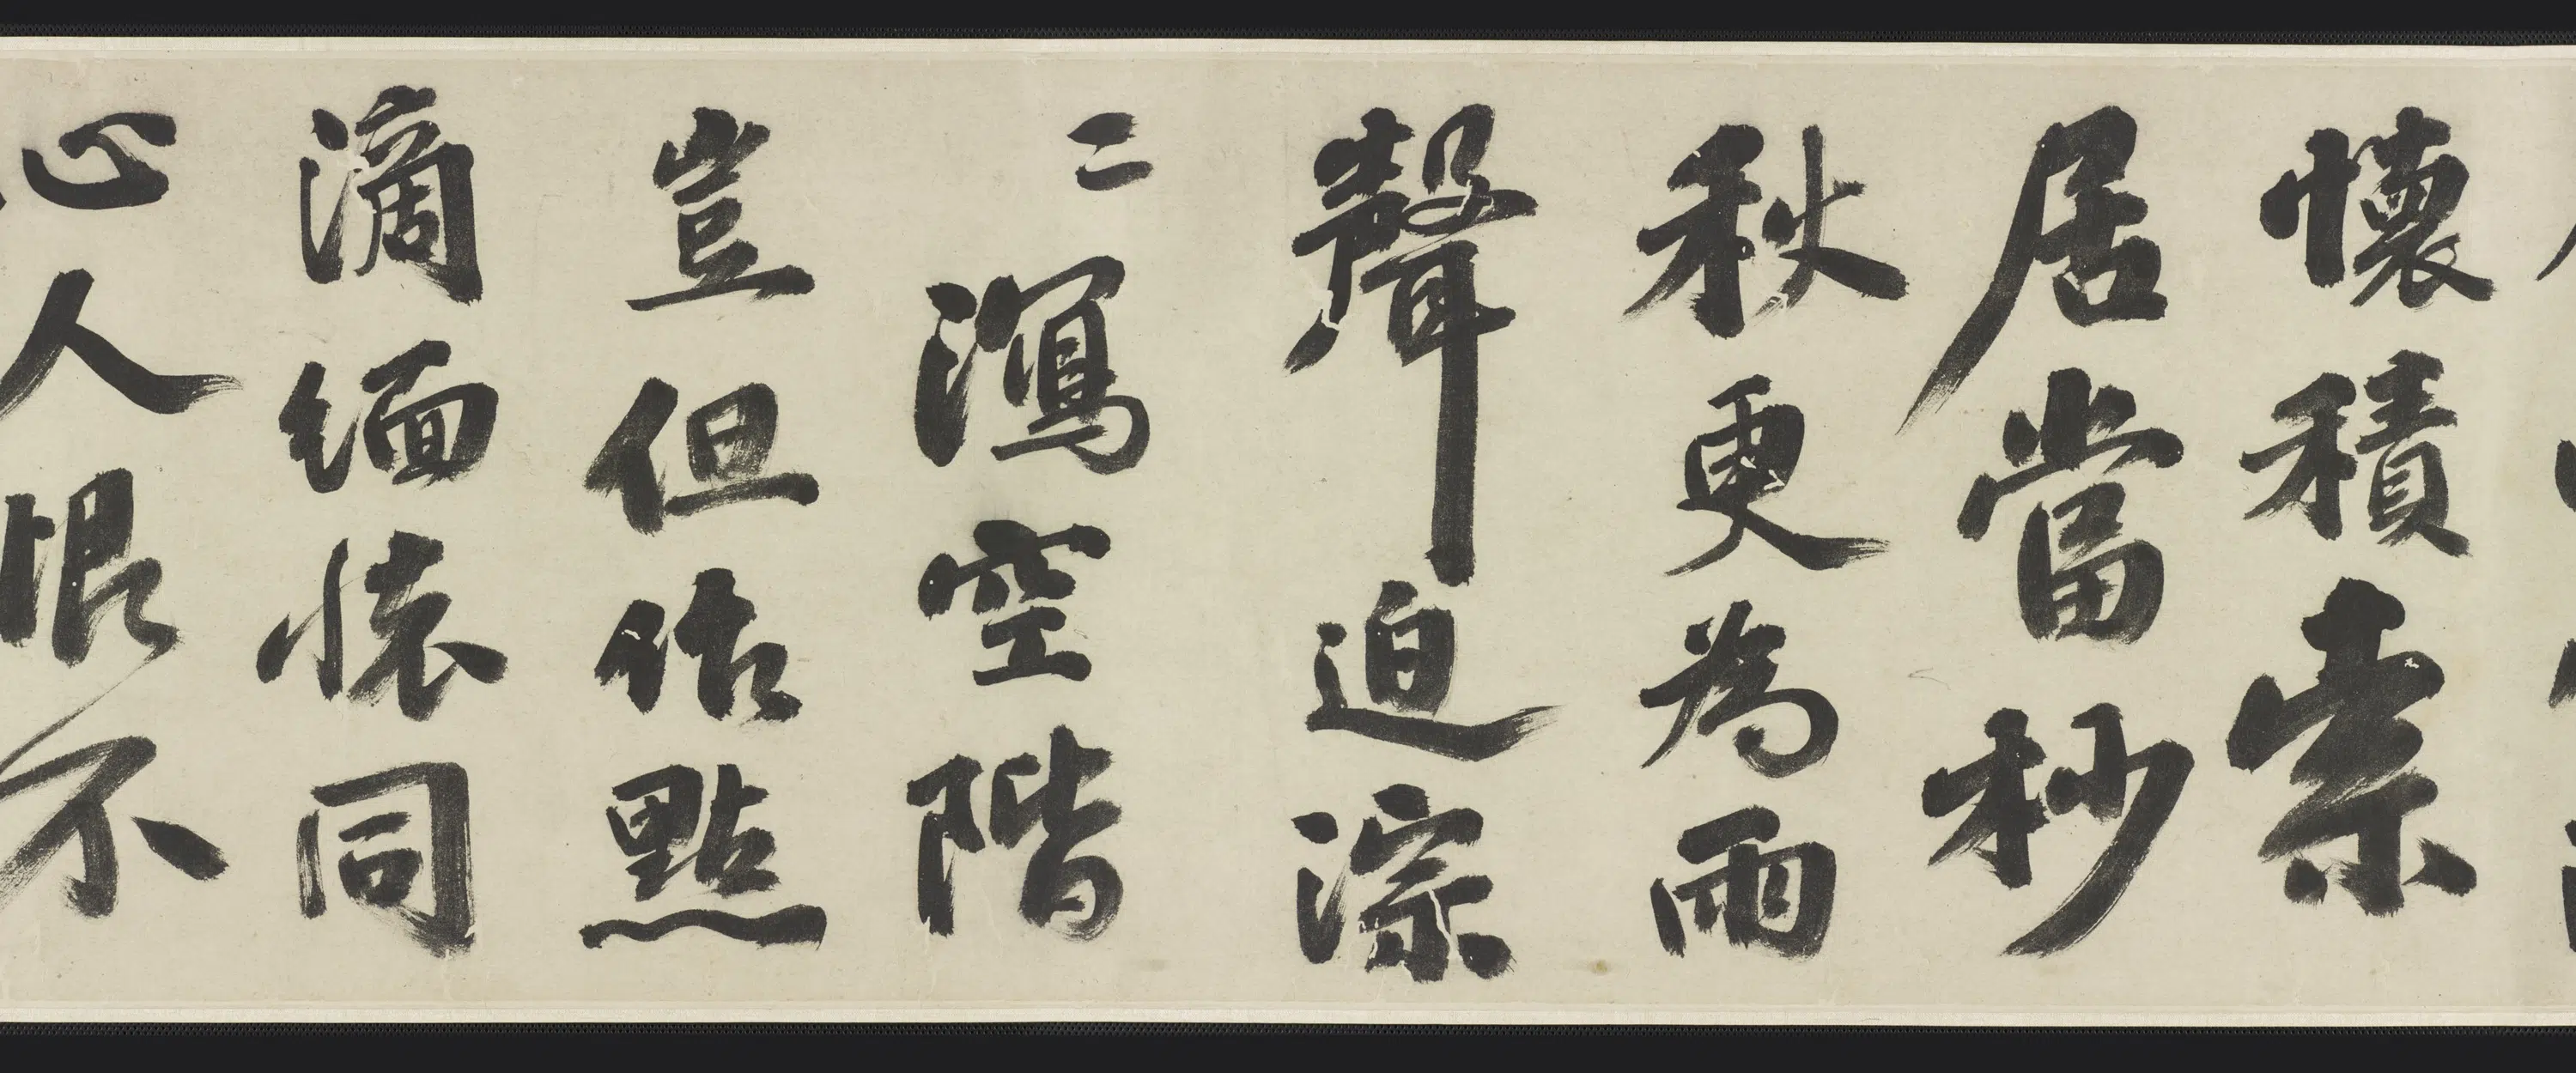 懷積素
居當杪
秋更為雨
聲迫淙
〻瀉空階
豈但估點
滴緬懷同
心人恨不